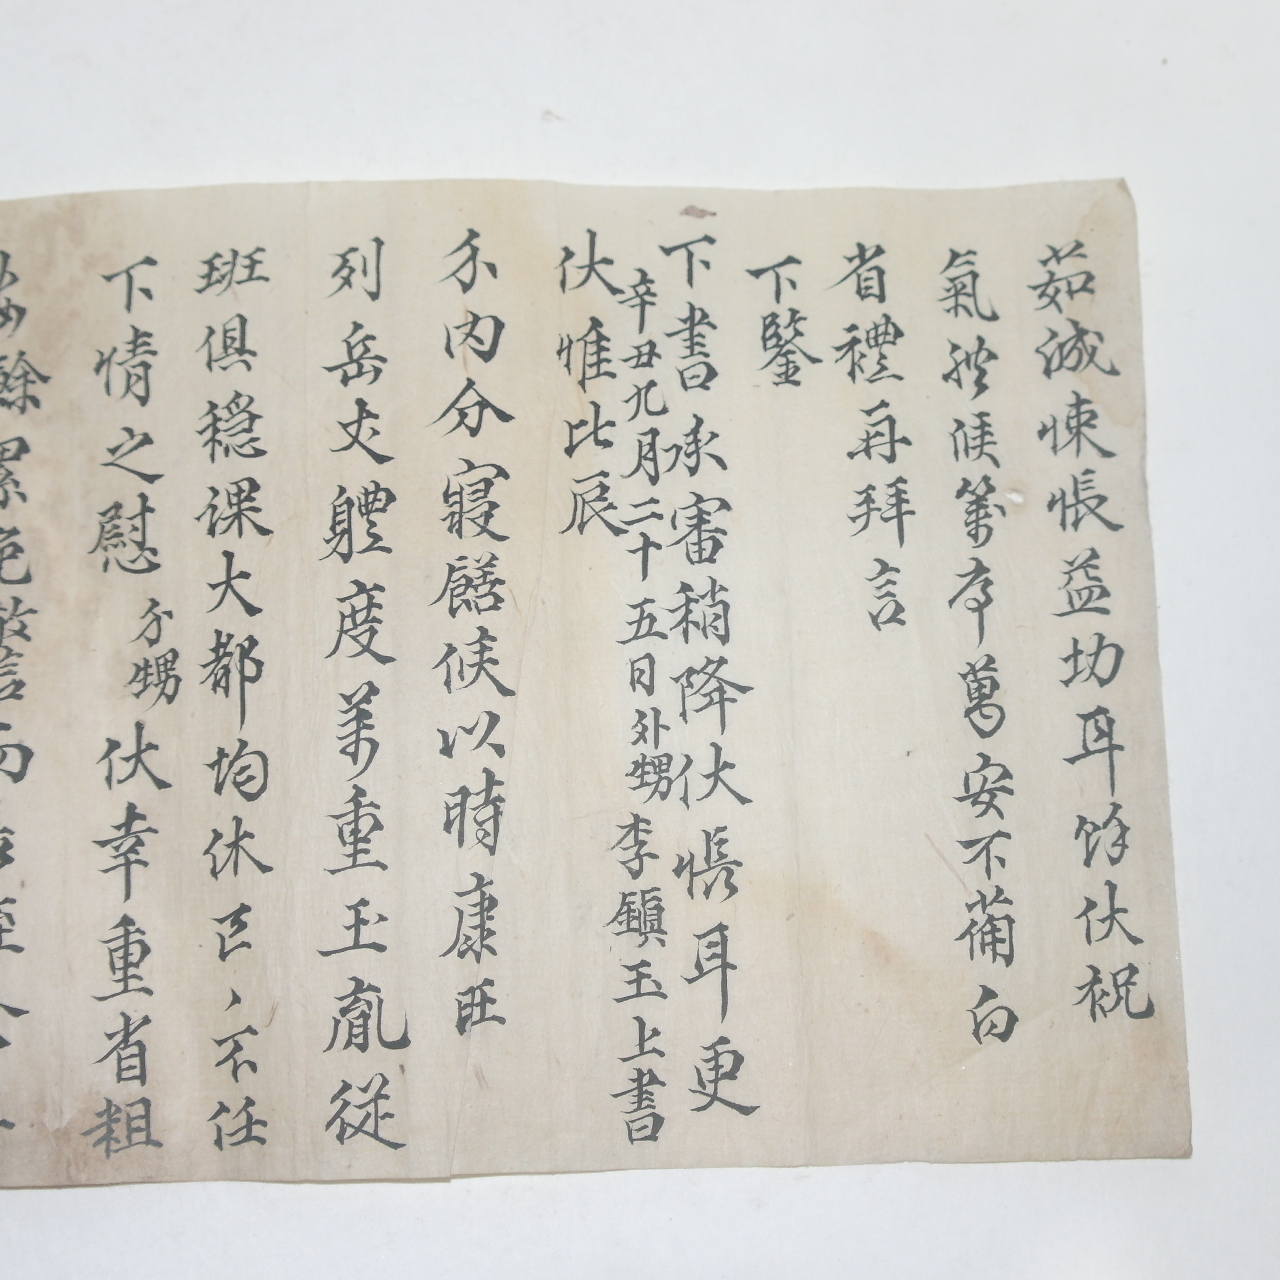 茹誠悚悵益切耳餘伏祝
氣體候序萬安不備白
省禮再拜言
下鑒
下書承審稍降伏悵耳更
辛丑九月二十五日外甥李鎭玉上書
伏惟比辰
內分寢饍候以時康旺
列岳丈體度萬重玉胤從
班俱穩課大都均休区〻不任
下情之慰外甥伏幸重省粗